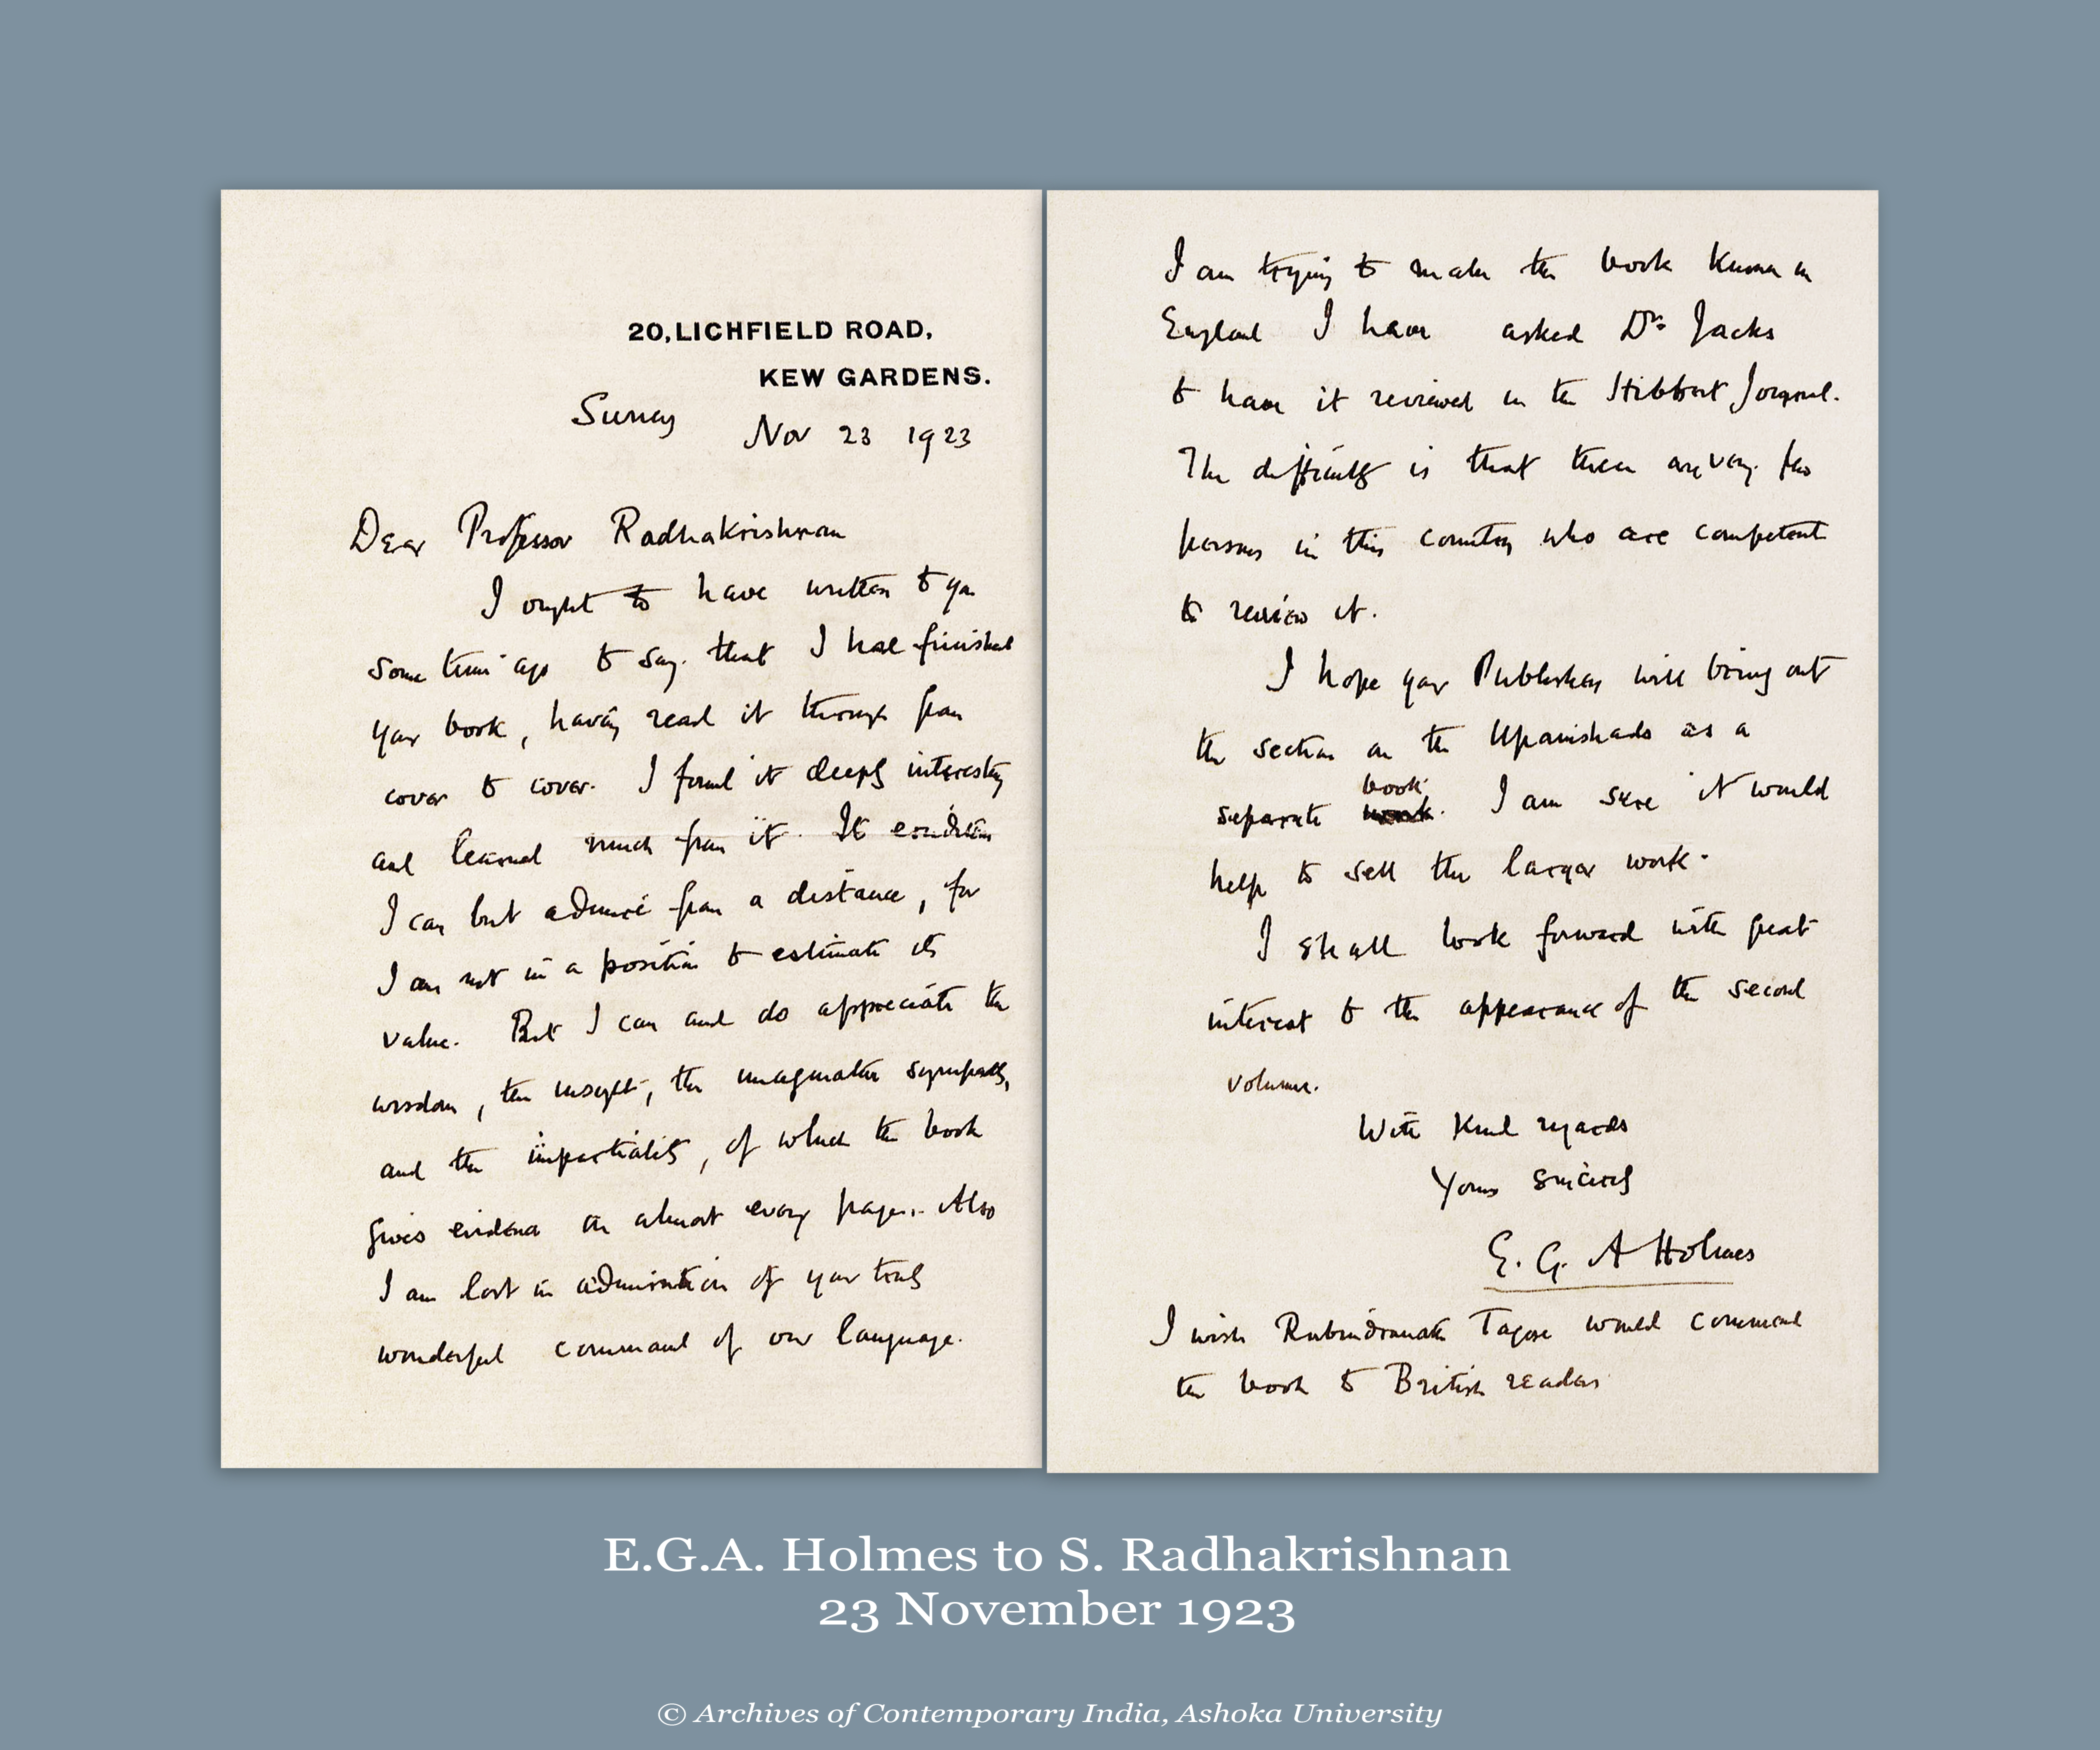 20, LICHFIELD ROAD,
KEW GARDENS.
Surrey
Nov 23 1923
Dear Professor Radhakrishnan
I ought to have written to you
some time ago to say that I had finished
your book, having read it through from
cover to cover. I found it deeply interesting
and learned much from it. Its erudition
I can but admire from a distance, for
I am not in a position to estimate its
value. But I can and do appreciate the
wisdom, the insight, the imaginative sympathy,
and the impartiality, of which the book
gives evidence on almost every page. Also
I am lost in admiration of your truly
wonderful command of our language.
I am trying to make the book known in
England I have asked Dr. Jacks
to have it reviewed in the Hibbert Journal.
The difficulty is that there are very few
persons in this country who are competent
to review it.
I hope your Publishers will bring out
the section on the Upanishads as a
book
separate work. I am sure it would
help to sell the larger work.
I shall look forward with great
interest to the appearance of the second
volume.
With kind regards
Yours sincerely
E. G. A Holmes
I wish Rabindranath Tagore would commend
the book to British readers
E.G.A. Holmes to S. Radhakrishnan
23 November 1923
© Archives of Contemporary India, Ashoka University